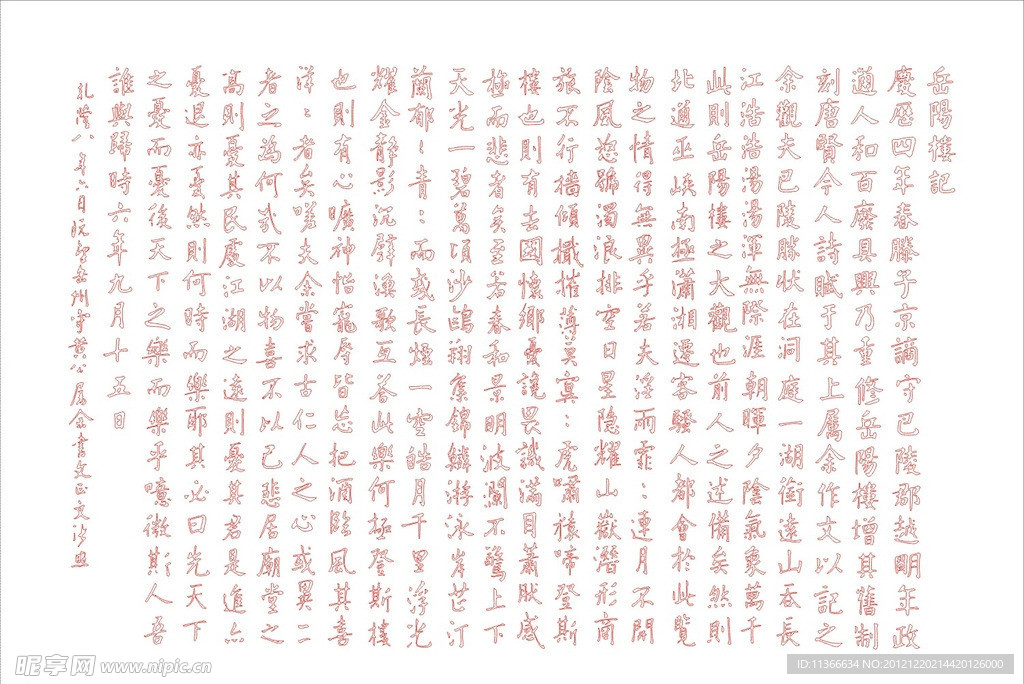 岳陽樓記
慶歷四年春滕子京謫守巴陵郡越明年政
通人和百廢具興乃重修岳陽樓增其舊制
刻唐賢今人詩賦于其上属余作文以記之
余觀夫巴陵勝狀在洞庭一湖銜遠山吞長
江浩浩湯湯渾無際涯朝暉夕陰氣象萬千
此則岳陽樓之大觀也前人之述備矣然則
北通巫峽南極瀟湘遷客騷人都會於此覧
物之情得無異乎若夫淫雨霏：連月不開
陰風怒號濁浪排空日星隐耀山嶽潛形商
旅不行檣傾檝摧薄暮冥：虎嘯猿啼登斯
樓也則有去國懷鄉憂讒畏譏滿目蕭然感
極而悲者矣至若春和景明波瀾不驚上下
天光一碧萬頃沙鷗翔集錦鱗游泳岸芷汀
蘭郁：青：而或長煙一空皓月千里浮光
耀金静影沉璧漁歌互答此樂何極登斯樓
也則有心曠神怡寵辱皆忘把酒臨風其喜
洋：者矣嗟夫余嘗求古仁人之心或異二
者之為何哉不以物喜不以己悲居廟堂之
高則憂其民處江湖之遠則憂其君是進亦
憂退亦憂然則何時而樂耶其必曰先天下
之憂而憂後天下之樂而樂乎噫微斯人吾
誰與歸時六年九月十五日
昵享网 www.nipic.cn
ID:11366634 NO:20121220214420126000